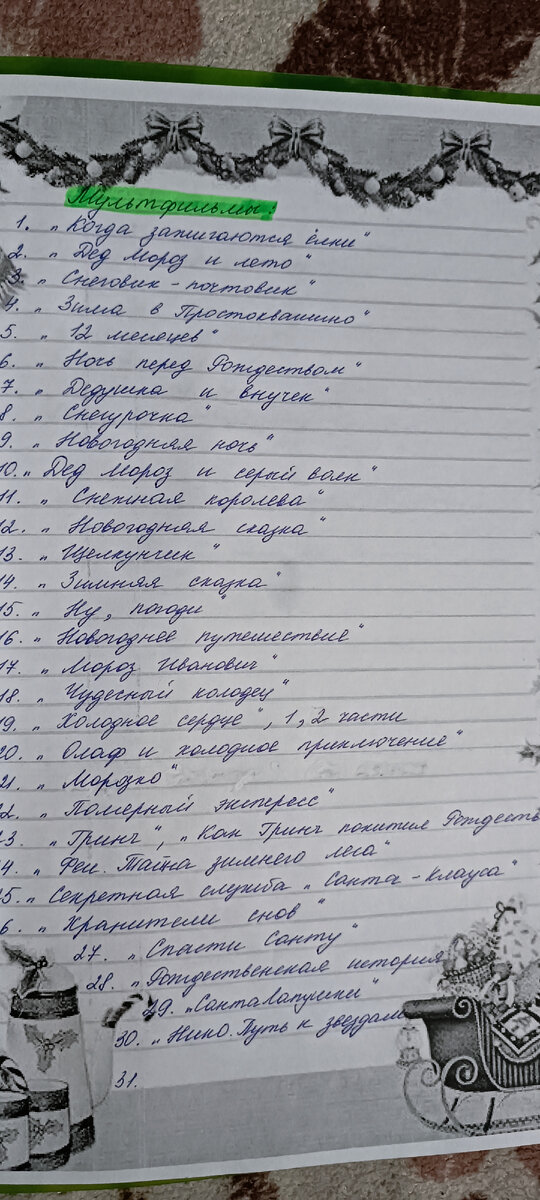 Мультфильмы:
1. „Когда зажигаются ёлки"
2. „Дед Мороз и лето"
3. „Снеговик-почтовик"
4. „Зима в Простоквашино"
5. „12 месяцев"
6. „Ночь перед Рождеством"
7. „Дедушка и внучек"
8. „Снегурочка"
9. „Новогодняя ночь"
10. „Дед Мороз и серый волк"
11. „Снежная королева"
12. „Новогодняя сказка"
13. „Щелкунчик"
14. „Зимняя сказка"
15. „Ну, погоди"
16. „Новогоднее путешествие"
17. „Мороз Иванович"
18. „Чудесный колодец"
19. „Холодное сердце", 1, 2 части
20. „Олаф и холодное приключение"
21. „Морозко"
22. „Полярный экспресс"
23. „Гринч", „Как Гринч похитил Рождеств
24. „Феи. Тайна зимнего леса"
25. „Секретная служба „Санта-Клауса"
26. „Хранители снов"
27. „Спасти Санту"
28. „Рождественская история
29. „Санта Лапушки"
30. „Нико. Путь к звездам
31.